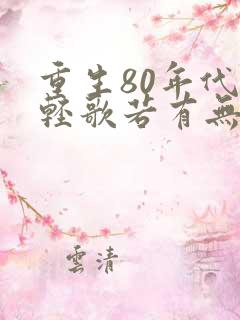 重生80年代
轻歌若有無
雲清